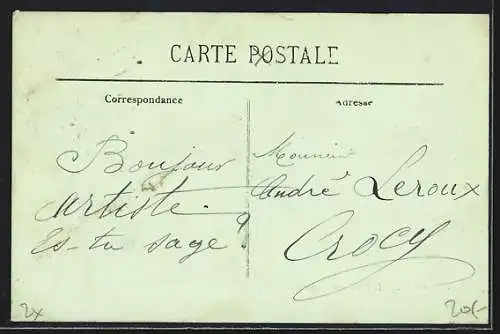 CARTE POSTALE
Correspondance
Adresse
Bonjour
artiste.
Es-tu sage ?
Monsieur
André Leroux
Crocy
2x
20/-